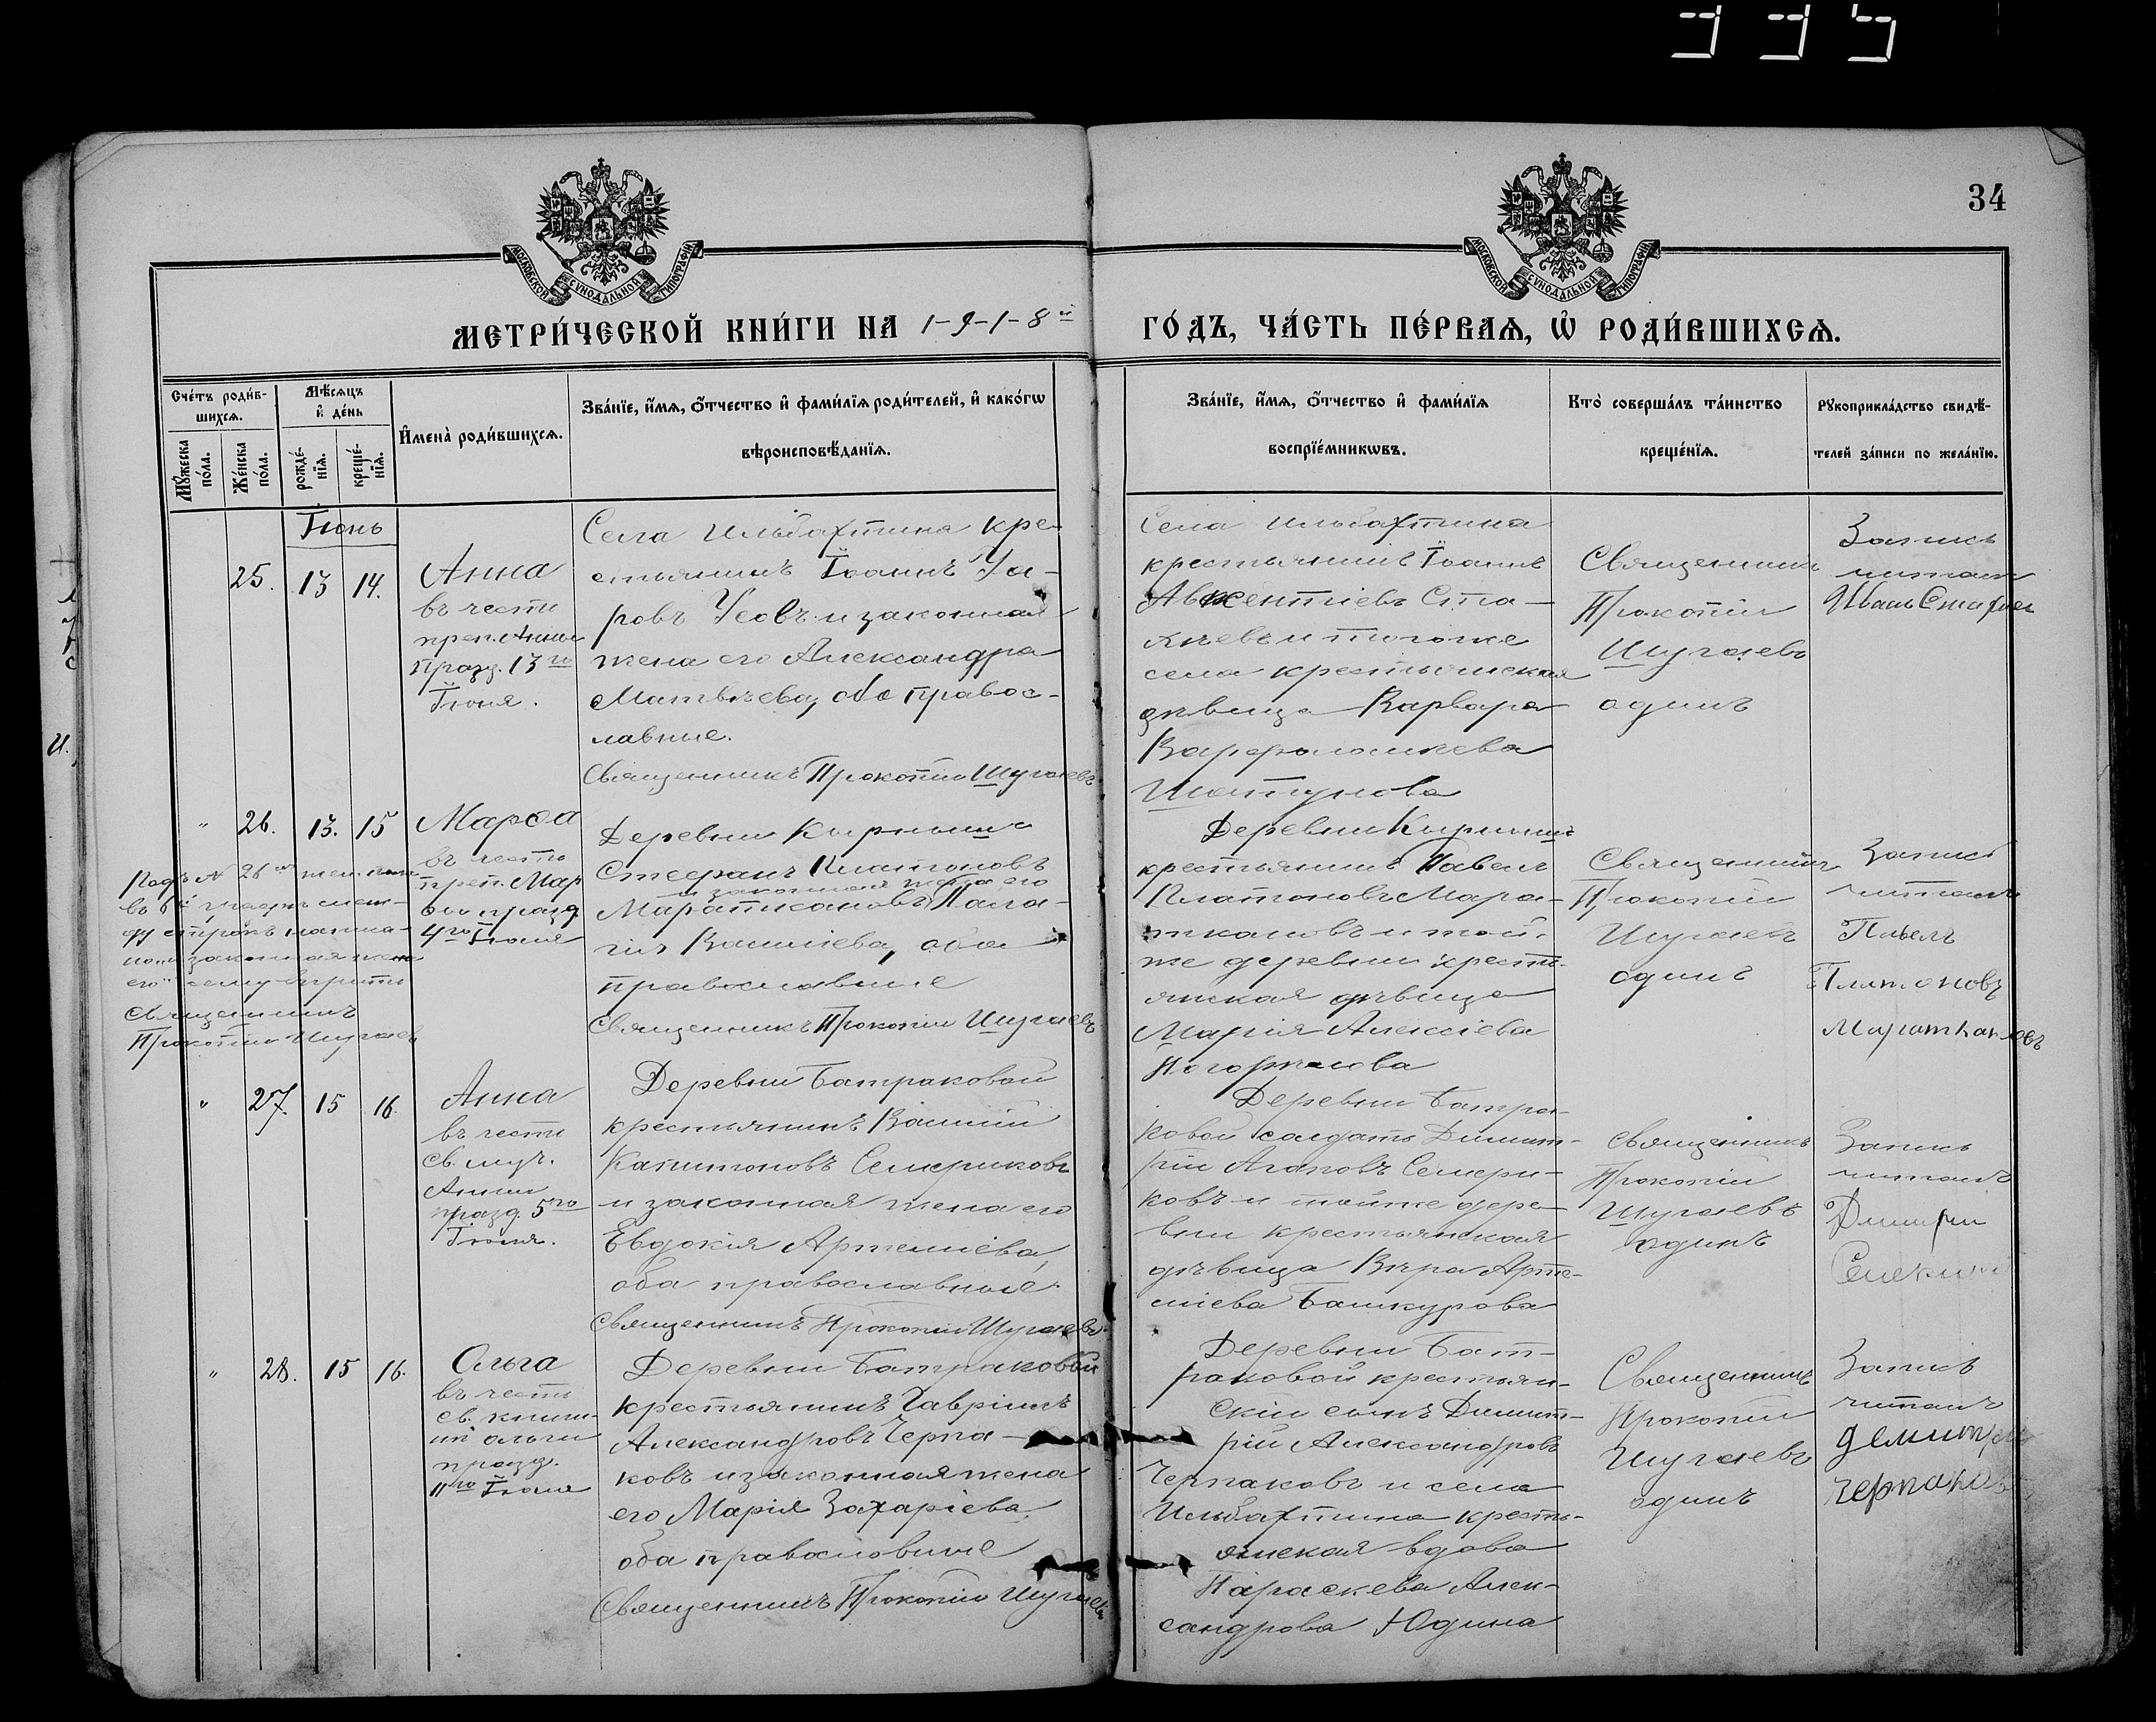 335
34
МОСКОВСКОЙ СѴНОДАЛЬНОЙ ТИПОГРАФІИ
МОСКОВСКОЙ СѴНОДАЛЬНОЙ ТИПОГРАФІИ
МЕТРИ́ЧЕСКОЙ КНИ́ГИ НА 1-9-1-8й
ГО́ДЪ, ЧА́СТЬ ПЕ́РВАѦ, Ѡ҆ РОДИ́ВШИХСѦ.
Сче́тъ роди́в-
шихсѧ.
Мꙋ́жеска по́ла.
Же́нска по́ла.
Мѣ́сѧцъ
и҆ де́нь
рожде́-
нїѧ.
креще́-
нїѧ.
И҆мена̀ роди́вшихсѧ.
Зва́нїе, и҆́мѧ, ѻ҆́тчество и҆ фами́лїѧ роди́телей, и҆ како́гѡ
вѣроисповѣ́данїѧ.
Зва́нїе, и҆́мѧ, ѻ҆́тчество и҆ фами́лїѧ
воспрїе́мникѡвъ.
Кто̀ соверша́лъ та́инство
креще́нїѧ.
Рꙋкоприкла́дство свидѣ́-
телей за́писи по жела́нїю.
Іюнь
25. 13 14.
Анна
въ честь
преп. Анны
празд. 13го
Іюня.
Села Ильбахтина кре-
стьянинъ Іоаннъ Ува-
ровъ Усовъ и законная
жена его Александра
Матвѣева, оба правос-
лавные.
Священникъ Прокопій Шугаевъ
Села Ильбахтина
крестьянинъ Іоаннъ
Авксентіевъ Ста-
и тогоже
села крестьянская
дѣвица Варвара
Варфоломѣева
Шатунова
Священникъ
Прокопій
Шугаевъ
одинъ
Запись
читалъ
Иванъ
" 26. 13. 15
Марѳа
въ честь
преп. Мар
ѳы празд
4го Іюля
Деревни Кирныша
Стефанъ Платоновъ
и законная жена его
Пала-
гія Васильева, оба
православные
Священникъ Прокопій Шугаевъ
Подъ № 26мъ жен. пола
въ 6й графѣ меж-
ду строкъ написа-
но "и законная жена
его" сему вѣрить
Священникъ
Прокопій Шугаевъ
Деревни Кирныша
крестьянинъ Павелъ
Платоновъ Мара-
ткановъ и той-
же деревни кресть-
янская дѣвица
Марія Алексіева
Погорѣлова
Священникъ
Прокопій
Шугаевъ
одинъ
Запись
читалъ
Павелъ
Платоновъ
Мараткановъ
" 27. 15 16.
Анна
въ честь
св. муч.
Анны
празд. 5го
Іюля.
Деревни Батраковой
крестьянинъ Василій
Капитоновъ Семериковъ
и законная жена его
Евдокія Артеміева,
оба православные.
Священникъ Прокопій Шугаевъ.
Деревни Батра-
ковой солдатъ Димит-
рій Агаповъ Семери-
ковъ и тойже дере-
вни крестьянская
дѣвица Вѣра Арте-
міева Башкурова
Священникъ
Прокопій
Шугаевъ
одинъ
Запись
читалъ
Димитри
" 28. 15 16.
Ольга
въ честь
св. княги-
ни Ольги
празд.
11го Іюля
Деревни Батраковой
крестьянинъ Гавріилъ
Александровъ Черпа-
ковъ и законная жена
его Марія Захаріева,
оба православные
Священникъ Прокопій Шугаевъ
Деревни Бат-
раковой крестьян-
скій сынъ Димит-
рій Александровъ
Черпаковъ и села
Ильбахтина кресть-
янская вдова
Параскева Алек-
сандрова Юдина
Священникъ
Прокопій
Шугаевъ
одинъ
Запись
читалъ
Демитри
Черпаковъ